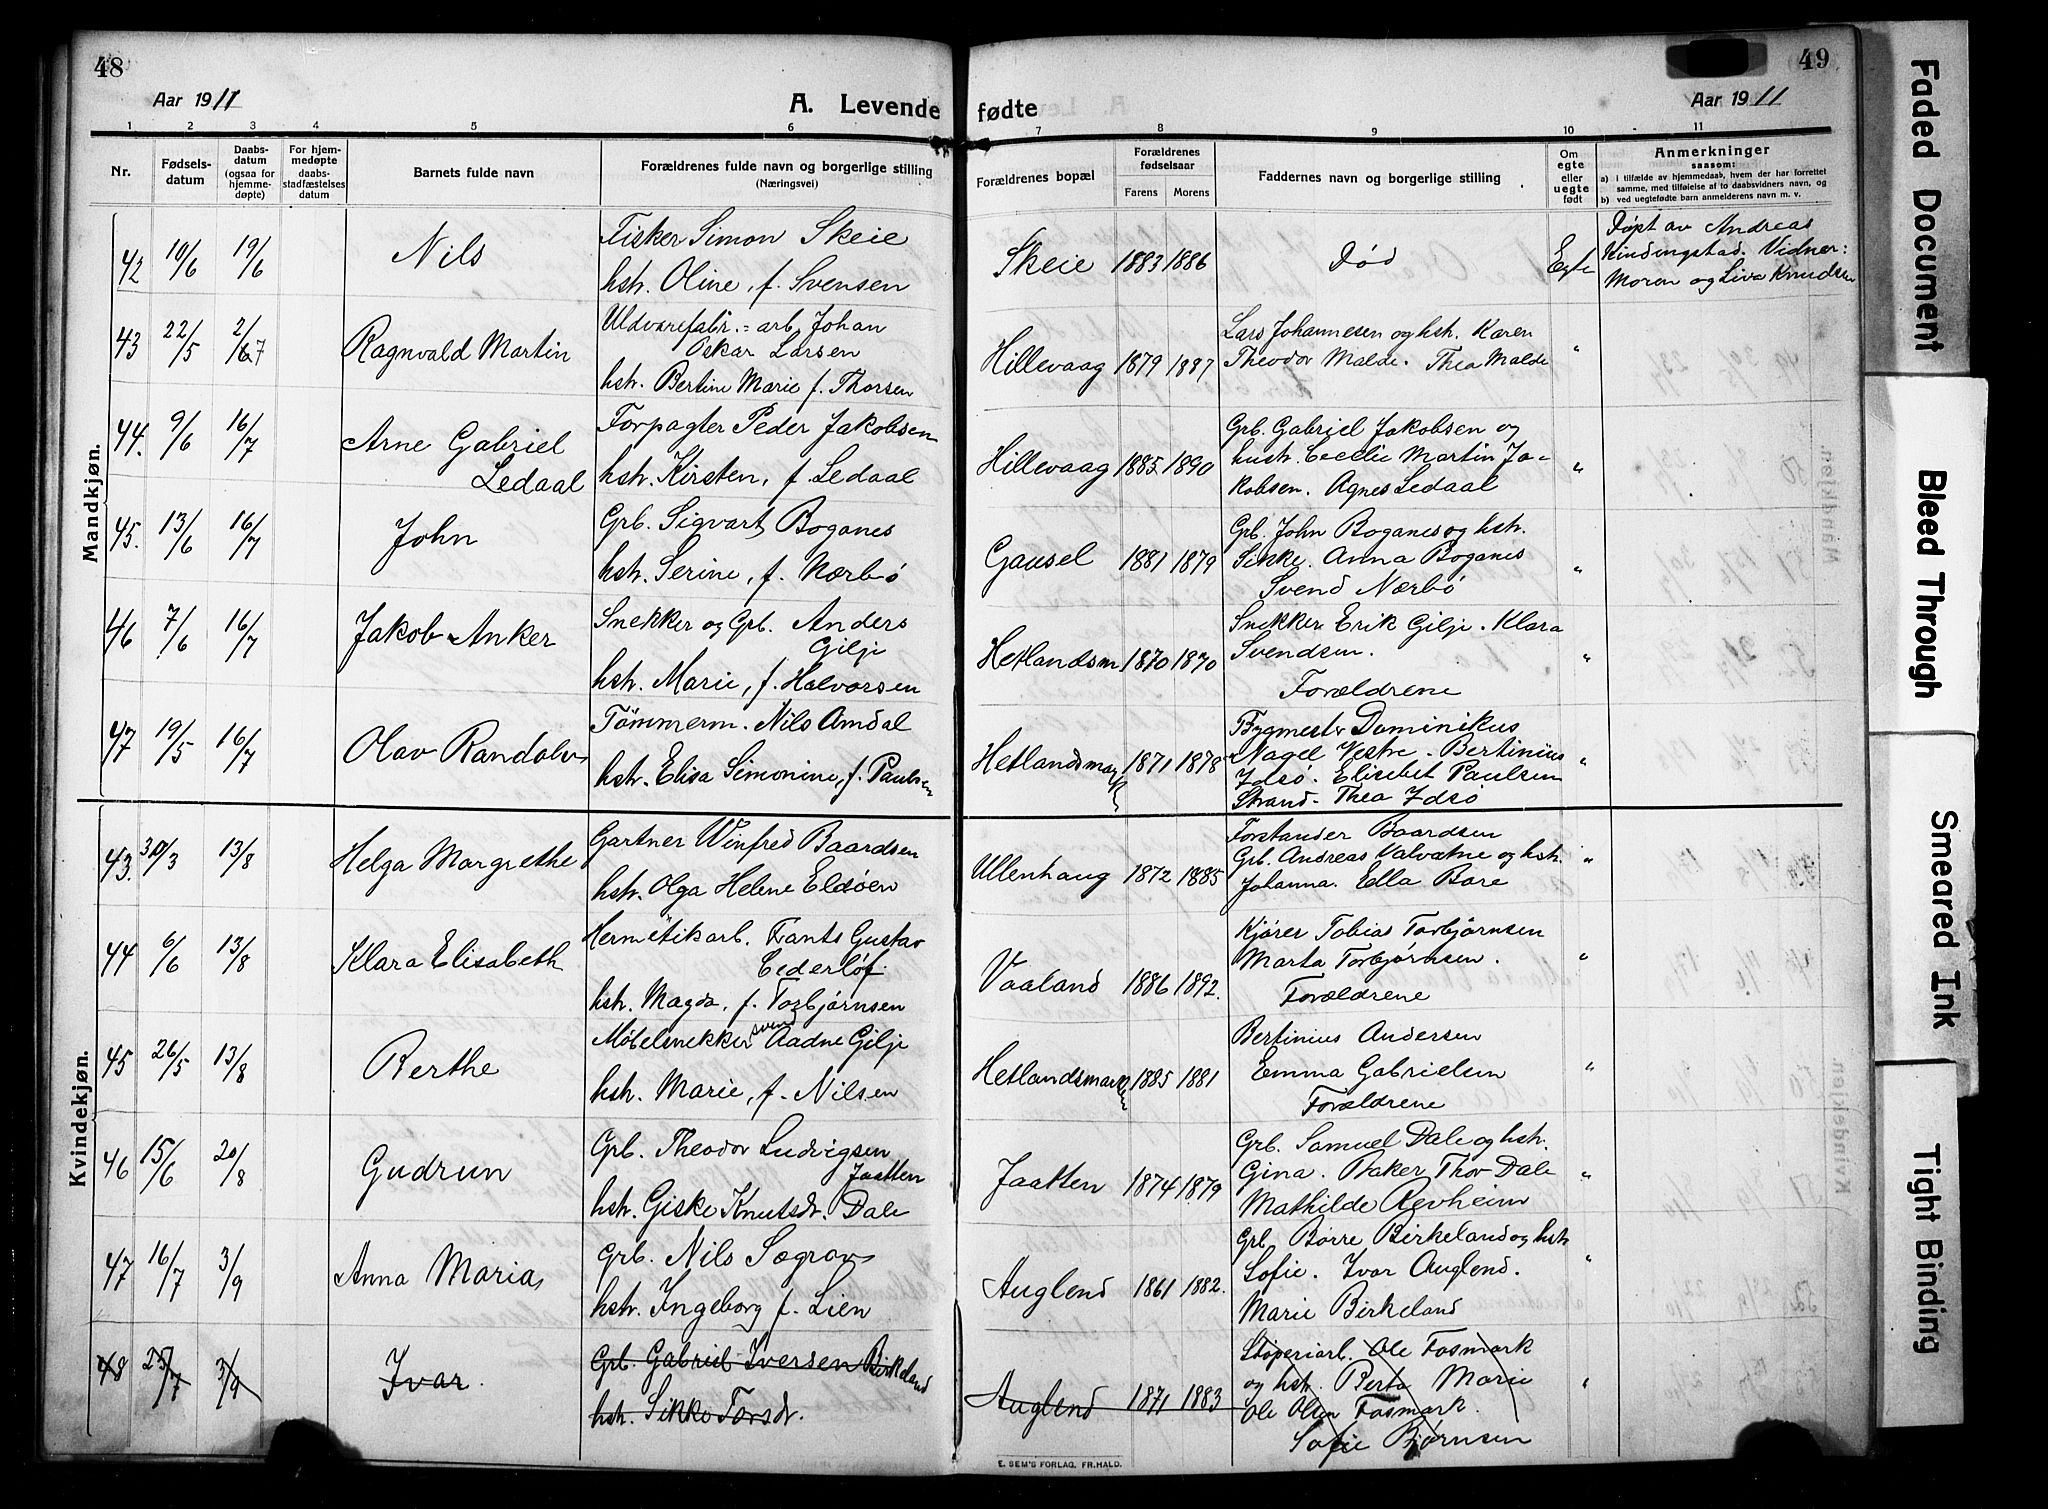 48
Aar 1911
A. Levende
1 2 3 4 5 6
Nr.
Fødsels-
datum
Daabs-
datum
(ogsaa for
hjemme-
døpte)
For hjem-
medøpte
daabs-
stadfæstelses
datum
Barnets fulde navn
Forældrenes fulde navn og borgerlige stilling
(Næringsvei)
Mandkjøn.
42 10/6 19/6 Nils
Fisker Simon Skeie
hstr. Oline, f. Svensen
43 22/5 2/7 Ragnvald Martin
Uldvarefabr.= arb. Johan
Oskar Larsen
hstr. Bertine Marie f. Thorsen
44. 9/6 16/7 Arne Gabriel
Ledaal
Forpagter Peder Jakobsen
hstr. Kirsten, f. Ledaal
45. 13/6 16/7 John
Grb. Sigvart Boganes
hstr. Serine, f. Nærbø
46 7/6 16/7 Jakob Anker
Snekker og Grb. Anders
Gilje
hstr. Marie, f. Halvorsen
47 19/5 16/7 Olav Randolv
Tømmerm. Nils Amdal
hstr. Elisa Simonine, f. Paulsen
Kvindekjøn.
43. 30/3 13/8 Helga Margrethe
Gartner Winfred Baardsen
hstr. Olga Helene Eldøen
44 6/6 13/8 Klara Elisabeth
Hermetikarb. Frants Gustav
Cederløf.
hstr. Magda, f. Torbjørnsen
45 26/5 13/8 Berthe
Møbelsnekker svend Aadne Gilje
hstr. Marie, f. Nilsen
46 15/6 20/8 Gudrun
Grb. Theodor Ludvigsen
Jaatten
hstr. Giske Knutsdr. Dale
47 16/7 3/9 Anna Maria
Grb. Nils Sægrov
hstr. Ingeborg f. Lien
48 25/7 3/9 Ivar.
Grb. Gabriel Iversen Birkeland
hstr. Sikke Torsdr.
49
fødte
Aar 1911
7 8 9 10 11
Forældrenes bopæl
Forældrenes
fødselsaar
Farens Morens
Faddernes navn og borgerlige stilling
Om
egte
eller
uegte
født
Anmerkninger
saasom:
a) i tilfælde av hjemmedaab, hvem der har forrettet
samme, med tilføielse af to daabsvidners navn, og
b) ved uegtefødte barn anmelderens navn m. v.
Skeie 1883 1886 Død Egte
Døpt av Andreas
Kindingstad. Vidner:
Moren og Liva Knudsen
Hillevaag 1879 1887
Lars Johannesen og hstr. Karen
Theodor Malde. Thea Malde "
Hillevaag 1885. 1890
Grb. Gabriel Jakobsen og
hustr. Cecilie Martin Ja-
kobsen. Agnes Ledaal "
Gausel 1881 1879
Grb. John Boganes og hstr.
Sikke. Anna Boganes
Svend Nærbø "
Hetlandsm 1870 1870
Snekker Erik Gilje. Klara
Svendsen.
Forældrene "
Hetlandsmark 1871 1878
Bygmester Dominikus
Nagel Vestre. Bertinius
Idsø. Elisebet Paulsen
Strand. Thea Idsø "
Ullenhaug 1872 1885
Forstander Baardsen
Grb. Andreas Valvatne og hstr.
Johanna. Ella Bore "
Vaaland 1886 1892.
Kjører Tobias Torbjørnsen
Marta Torbjørnsen.
Forældrene "
Hetlandsmarken 1885 1881
Bertinius Andersen
Emma Gabrielsen
Forældrene "
Jaatten 1874 1879
Grb. Samuel Dale og hstr.
Gina. Baker Thor Dale
Mathilde Revheim "
Auglend 1861 1882.
Grb. Børre Birkeland og hstr
Sofie. Ivar Auglend.
Marie Birkeland "
Auglend 1871 1883
Støperiarb. Ole Fosmark
og hstr. Berta Marie
Ole Olsen Fosmark.
Sofie Bjørnsen "
E. SEM'S FORLAG. FR.HALD.
Faded Document
Bleed Through
Smeared Ink
Tight Binding